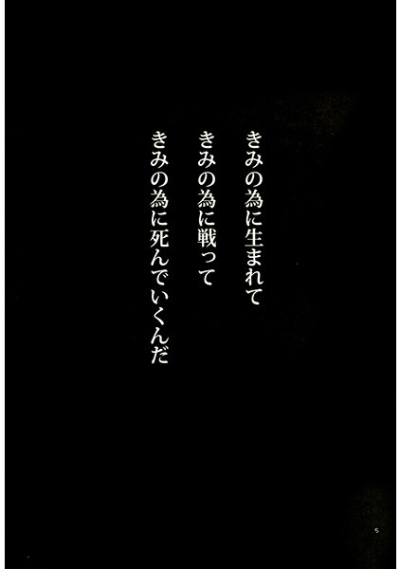 きみの為に生まれて
きみの為に戦って
きみの為に死んでいくんだ
5